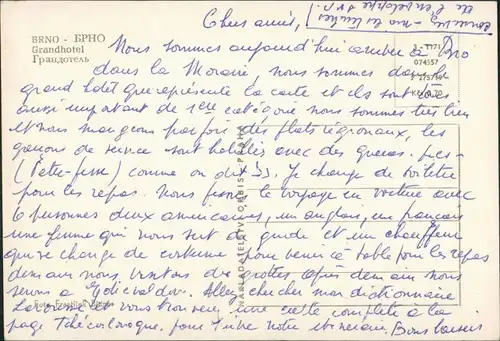 Chers amis,
BRNO - БРНО
Grandhotel
Грандотель
3 - 1171
074557
Nous sommes aujourd'hui à Brno
dans la Moravie, nous sommes dans le
grand hôtel que représente la carte et ils sont
aussi important de 1ère catégorie nous sommes très bien
et nous mangeons parfois des plats régionaux, les
garçons de service sont habillés avec des queues de
(Pète-fesse) comme on dit Je change de toilette
pour les repas. Nous faisons le voyage en voiture avec
6 personnes deux américaines, un anglais, un français
une femme qui nous sert de guide et un chauffeur
qui se change de costume pour venir à table pour les repas
demain nous visitons des grottes après demain nous
serons à Gottwaldov. Allez chercher mon dictionnaire
Larousse et vous trouverez une carte complète à la
page Tchécoslovaque. pour suivre notre itinéraire. Bons baisers
NAKLADATELSTVÍ ORBIS, PRAHA
Foto